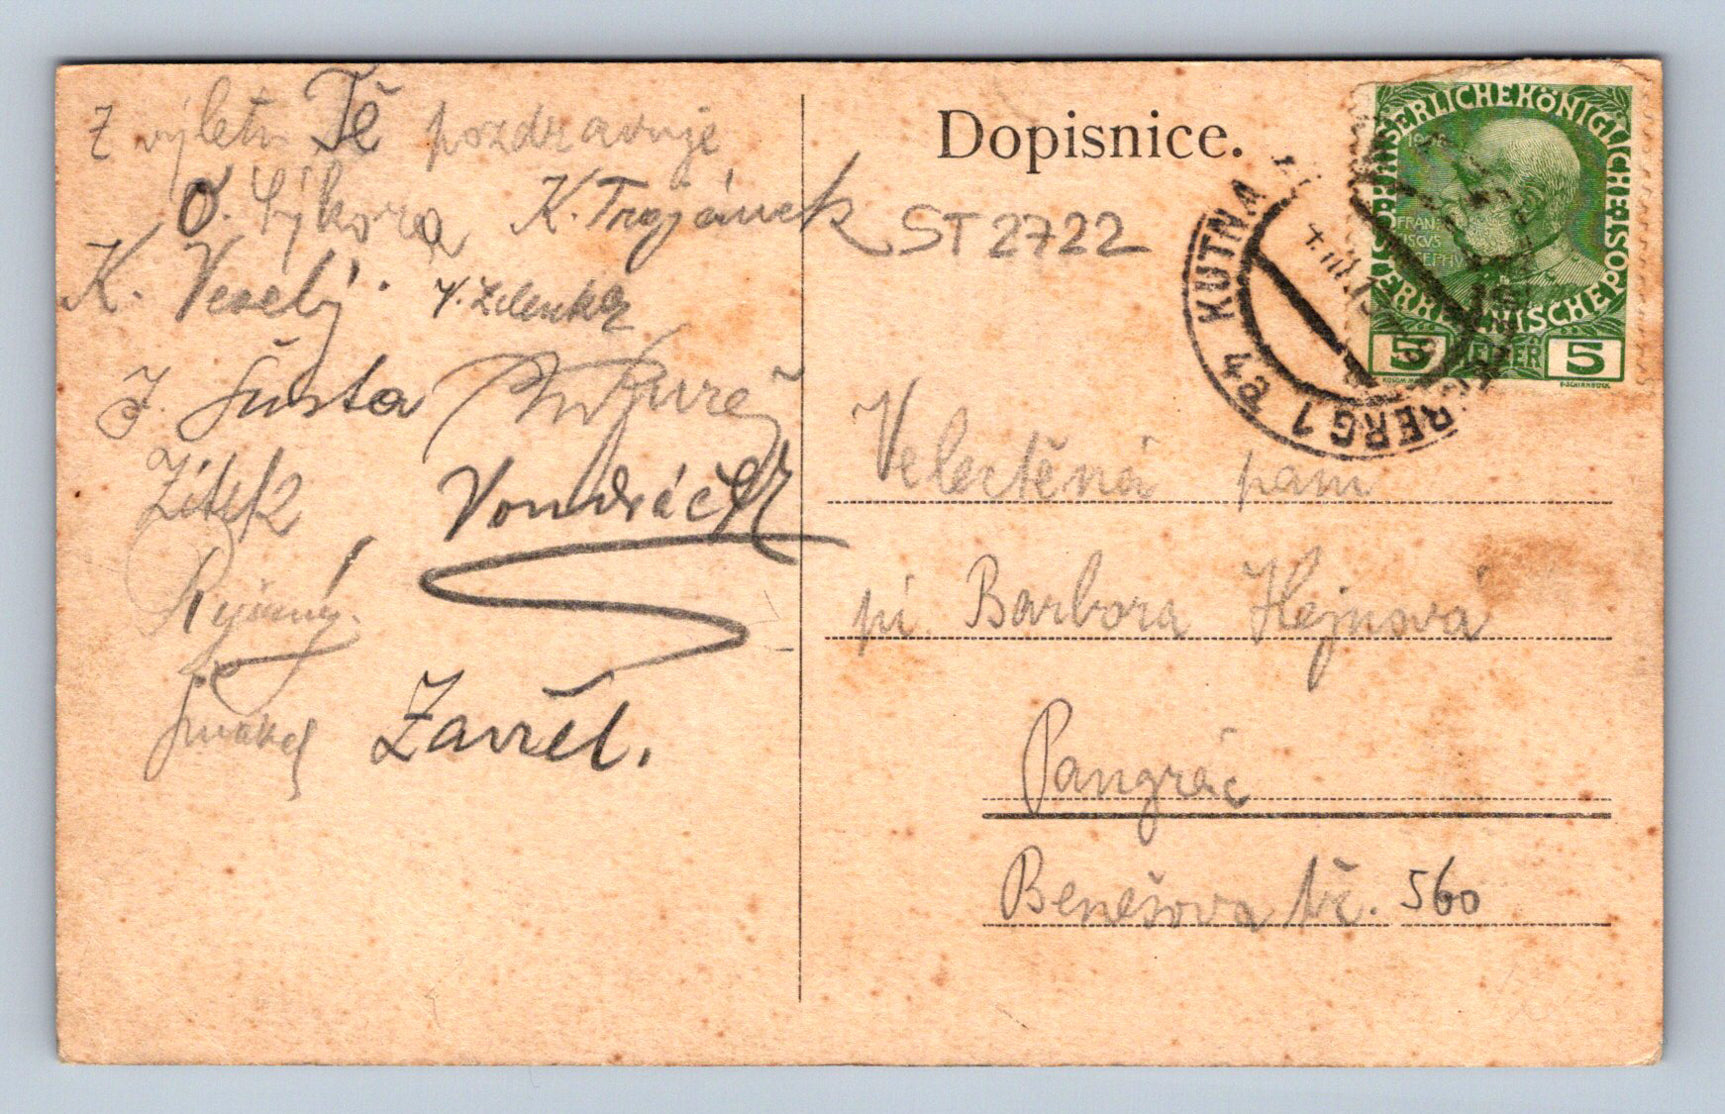 Z výletu Tě pozdravuje
O. Sýkora K. Trojánek
K. Veselý. V. Zelenka
J. Šusta Bureš
Zítek Vondráček
Zavřel.
Dopisnice.
ST 2722
KAISERLICHE KÖNIGLICHE ÖSTERREICHISCHE POST
1908
FRANCISCUS JOSEPHUS
5 HELLER 5
KUTNÁ HORA KUTTENBERG 1
Velectěná paní
pí. Barbora Hejnová
Pangrác
Benešova tř. 560